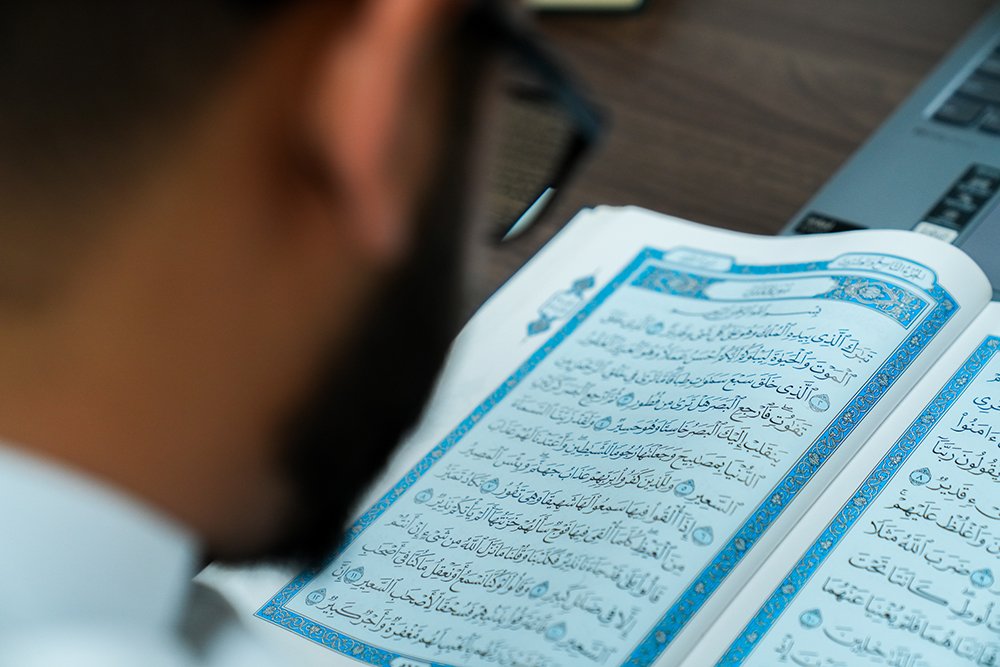 ءَامَنُوا۟
يَقُولُونَ رَبَّنَا
شَىْءٍ قَدِيرٌ ٨
وَٱغْلُظْ عَلَيْهِمْ
ضَرَبَ ٱللَّهُ مَثَلًا
كَانَتَا تَحْتَ
فَلَمْ يُغْنِيَا عَنْهُمَا
ٱلدَّٰخِلِينَ ١٠
تَبَٰرَكَ ٱلَّذِى بِيَدِهِ ٱلْمُلْكُ وَهُوَ عَلَىٰ كُلِّ شَىْءٍ قَدِيرٌ ١ ٱلَّذِى خَلَقَ
ٱلْمَوْتَ وَٱلْحَيَوٰةَ لِيَبْلُوَكُمْ أَيُّكُمْ أَحْسَنُ عَمَلًا وَهُوَ ٱلْعَزِيزُ ٱلْغَفُورُ ٢
ٱلَّذِى خَلَقَ سَبْعَ سَمَٰوَٰتٍ طِبَاقًا مَّا تَرَىٰ فِى خَلْقِ ٱلرَّحْمَٰنِ مِن
تَفَٰوُتٍ فَٱرْجِعِ ٱلْبَصَرَ هَلْ تَرَىٰ مِن فُطُورٍ ٣ ثُمَّ ٱرْجِعِ ٱلْبَصَرَ كَرَّتَيْنِ
يَنقَلِبْ إِلَيْكَ ٱلْبَصَرُ خَاسِئًا وَهُوَ حَسِيرٌ ٤ وَلَقَدْ زَيَّنَّا ٱلسَّمَآءَ
ٱلدُّنْيَا بِمَصَٰبِيحَ وَجَعَلْنَٰهَا رُجُومًا لِّلشَّيَٰطِينِ وَأَعْتَدْنَا لَهُمْ عَذَابَ
ٱلسَّعِيرِ ٥ وَلِلَّذِينَ كَفَرُوا۟ بِرَبِّهِمْ عَذَابُ جَهَنَّمَ وَبِئْسَ ٱلْمَصِيرُ
٦ إِذَآ أُلْقُوا۟ فِيهَا سَمِعُوا۟ لَهَا شَهِيقًا وَهِىَ تَفُورُ ٧ تَكَادُ تَمَيَّزُ
مِنَ ٱلْغَيْظِ كُلَّمَآ أُلْقِىَ فِيهَا فَوْجٌ سَأَلَهُمْ خَزَنَتُهَآ أَلَمْ يَأْتِكُمْ نَذِيرٌ ٨
قَالُوا۟ بَلَىٰ قَدْ جَآءَنَا نَذِيرٌ فَكَذَّبْنَا وَقُلْنَا مَا نَزَّلَ ٱللَّهُ مِن شَىْءٍ إِنْ أَنتُمْ
إِلَّا فِى ضَلَٰلٍ كَبِيرٍ ٩ وَقَالُوا۟ لَوْ كُنَّا نَسْمَعُ أَوْ نَعْقِلُ مَا كُنَّا فِىٓ أَصْحَٰبِ
ٱلسَّعِيرِ ١٠ فَٱعْتَرَفُوا۟ بِذَنۢبِهِمْ فَسُحْقًا لِّأَصْحَٰبِ ٱلسَّعِيرِ ١١ إِنَّ
ٱلَّذِينَ يَخْشَوْنَ رَبَّهُم بِٱلْغَيْبِ لَهُم مَّغْفِرَةٌ وَأَجْرٌ كَبِيرٌ ١٢